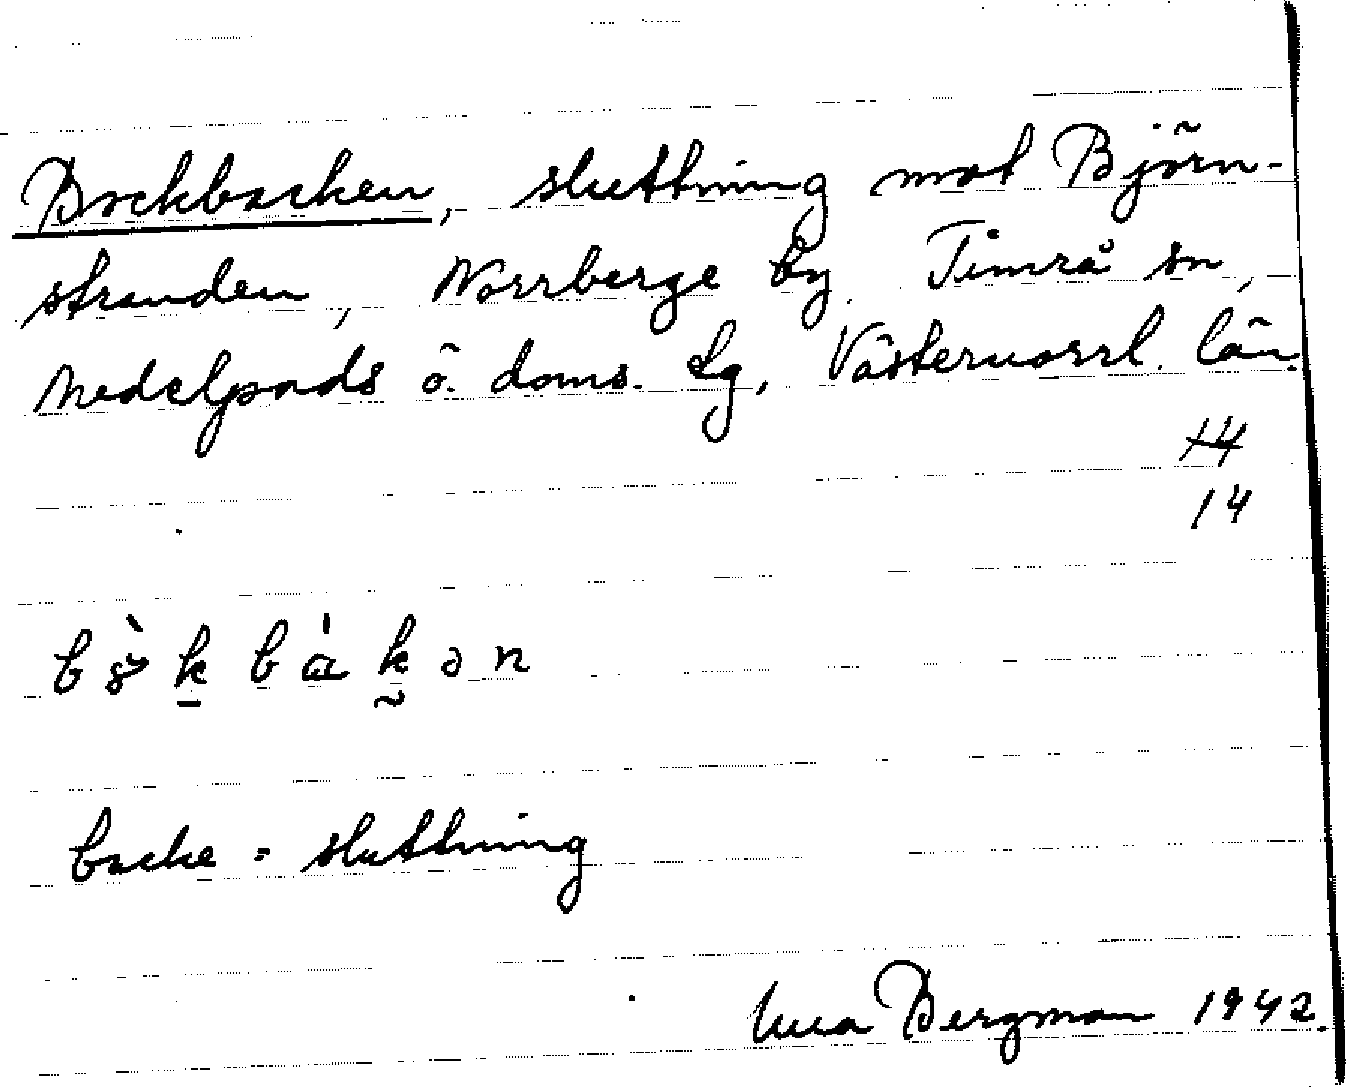 Bockbacken, sluttning mot Björn-
stranden, Norrberge by. Timrå sn,
Medelpads ö. doms. tg, Västernorrl. län.
14
14
backe = sluttning
Bergman 1942.